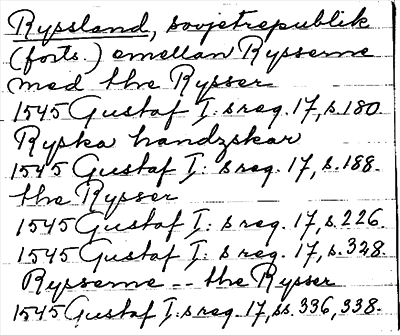 Ryssland, sovjetrepublik
(forts.) emellan Rysserne
med the Rysser
1545 Gustaf I: s reg. 17, s. 180.
Ryska handzskar
1545 Gustaf I: s reg. 17, s. 188.
the Rysser
1545 Gustaf I: s reg. 17, s. 226.
1545 Gustaf I: s reg. 17, s. 328.
Rysserne -- the Rysser
1545 Gustaf I: s reg. 17, ss. 336, 338.